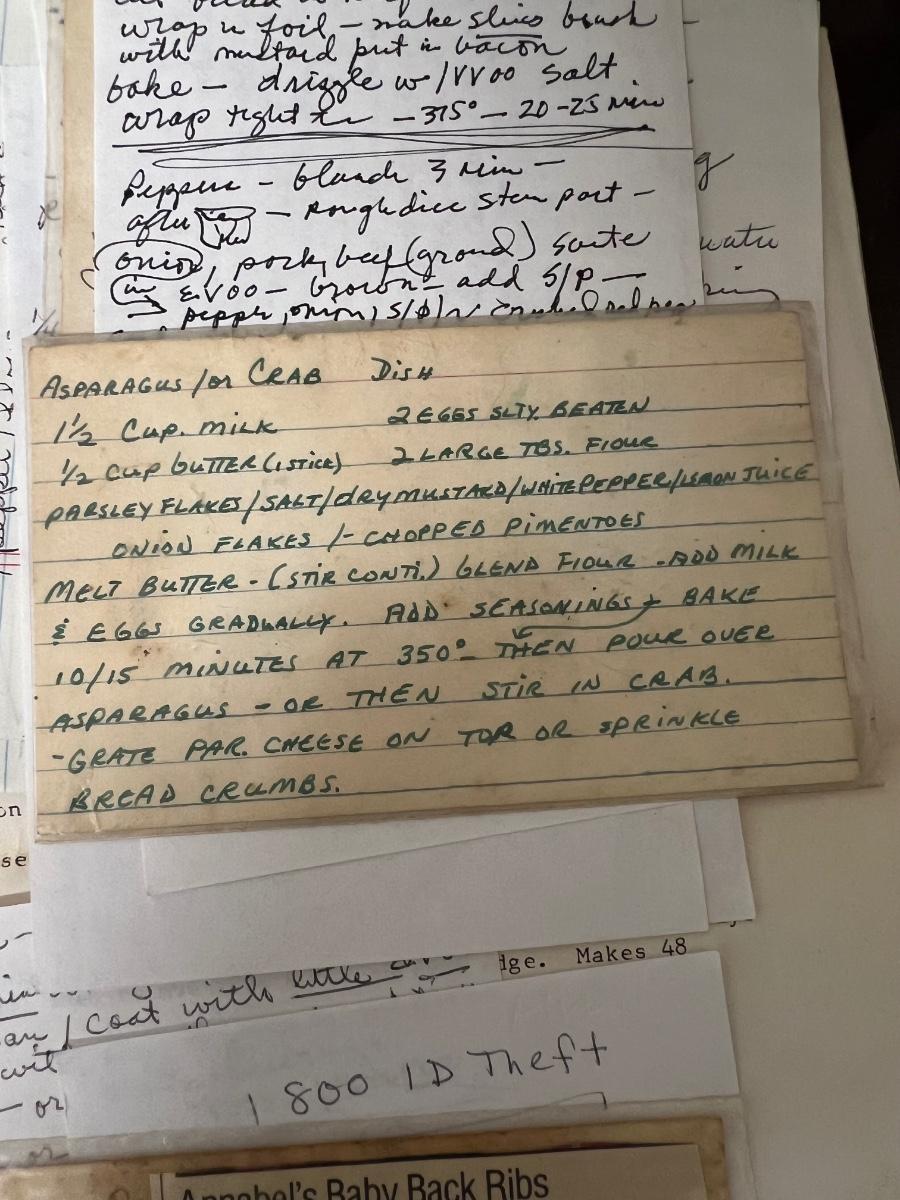 wrap in foil - make slices brush
with mustard put in bacon
bake - drizzle w/ VVOO Salt.
wrap tight - 375° - 20-25 min
Peppers - blanch 3 min -
after - rough dice stem part -
onion, pork, beef (ground) saute
in EVOO - brown - add S/P -
→ pepper, onion, S/P
ASPARAGUS/or CRAB DISH
1½ CUP. MILK 2 EGGS SLTY. BEATEN
½ CUP BUTTER (1 STICK) 2 LARGE TBS. FlOUR
PARSLEY FLAKES/SALT/dRY MUSTARD/WHITE PEPPER/LEMON JUICE
ONION FLAKES /- CHOPPED PIMENTOES
MELT BUTTER - (STIR CONTI.) BLEND FlOUR - ADD MILK
& EGGS GRADUALLY. ADD SEASONINGS + BAKE
10/15 MINUTES AT 350° - THEN POUR OVER
ASPARAGUS - OR THEN STIR IN CRAB.
- GRATE PAR. CHEESE ON TOP OR SPRINKLE
BREAD CRUMBS.
on
se
dge. Makes 48
/ coat with little
- or
1 800 ID Theft
Annabel's Baby Back Ribs